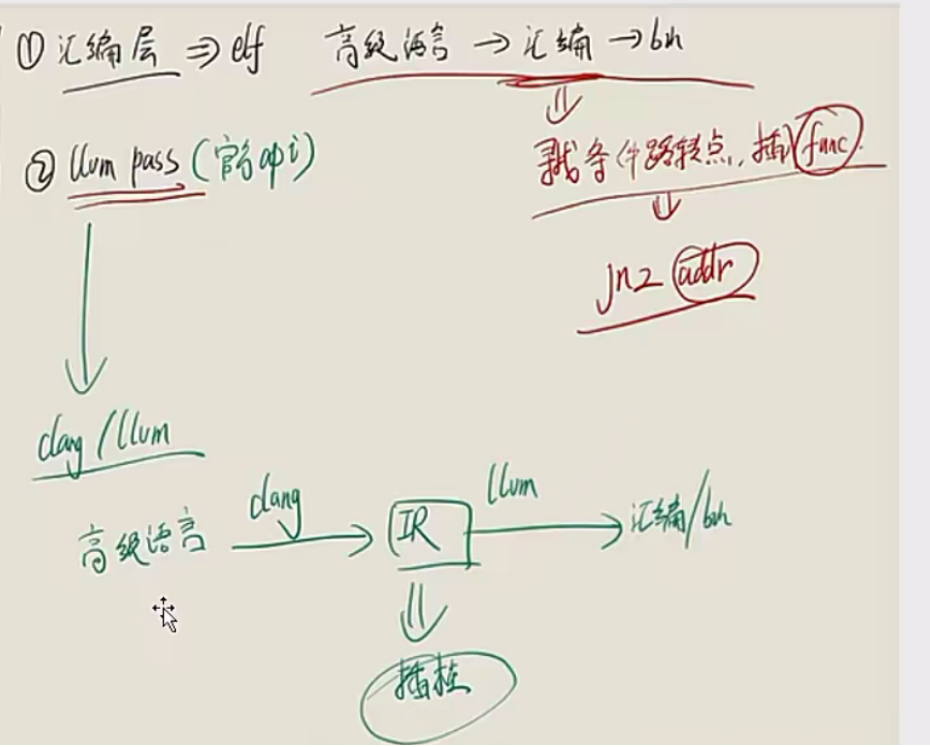 ① 汇编层 ⇒ elf 高级语言 → 汇编 → bin
找条件跳转点,插 func.
② llvm pass (官方api)
jnz addr
clang/llvm
高级语言 clang → IR llvm → 汇编/bin
插桩